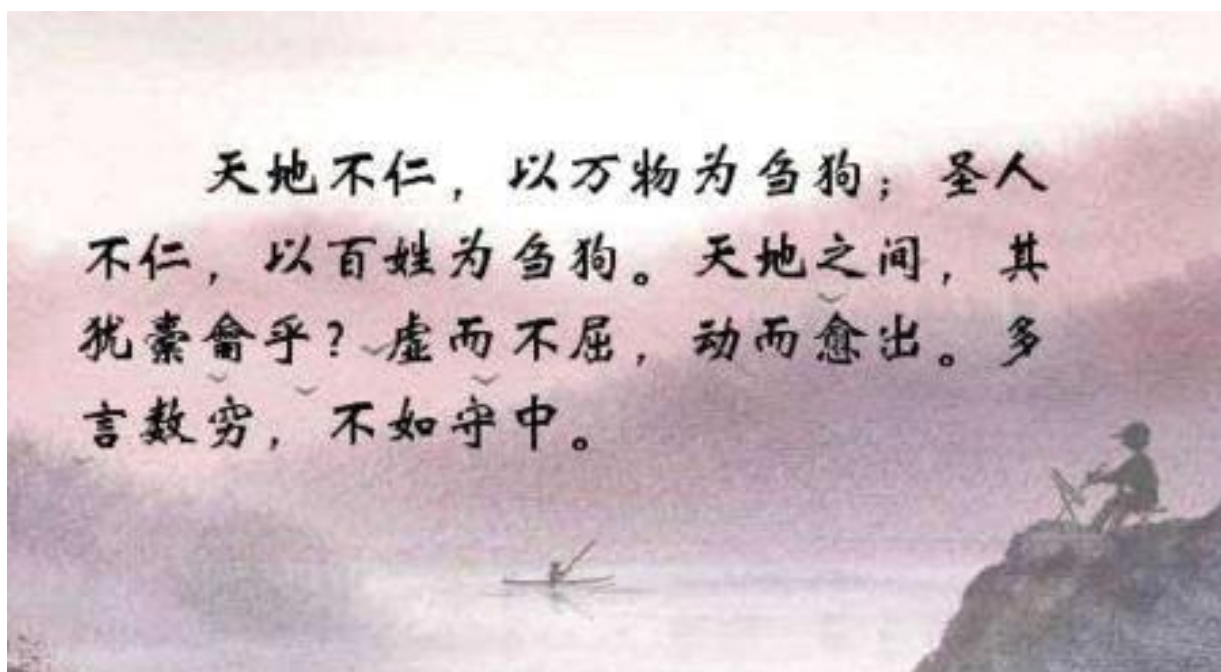 天地不仁，以万物为刍狗；圣人
不仁，以百姓为刍狗。天地之间，其
犹橐龠乎？虚而不屈，动而愈出。多
言数穷，不如守中。